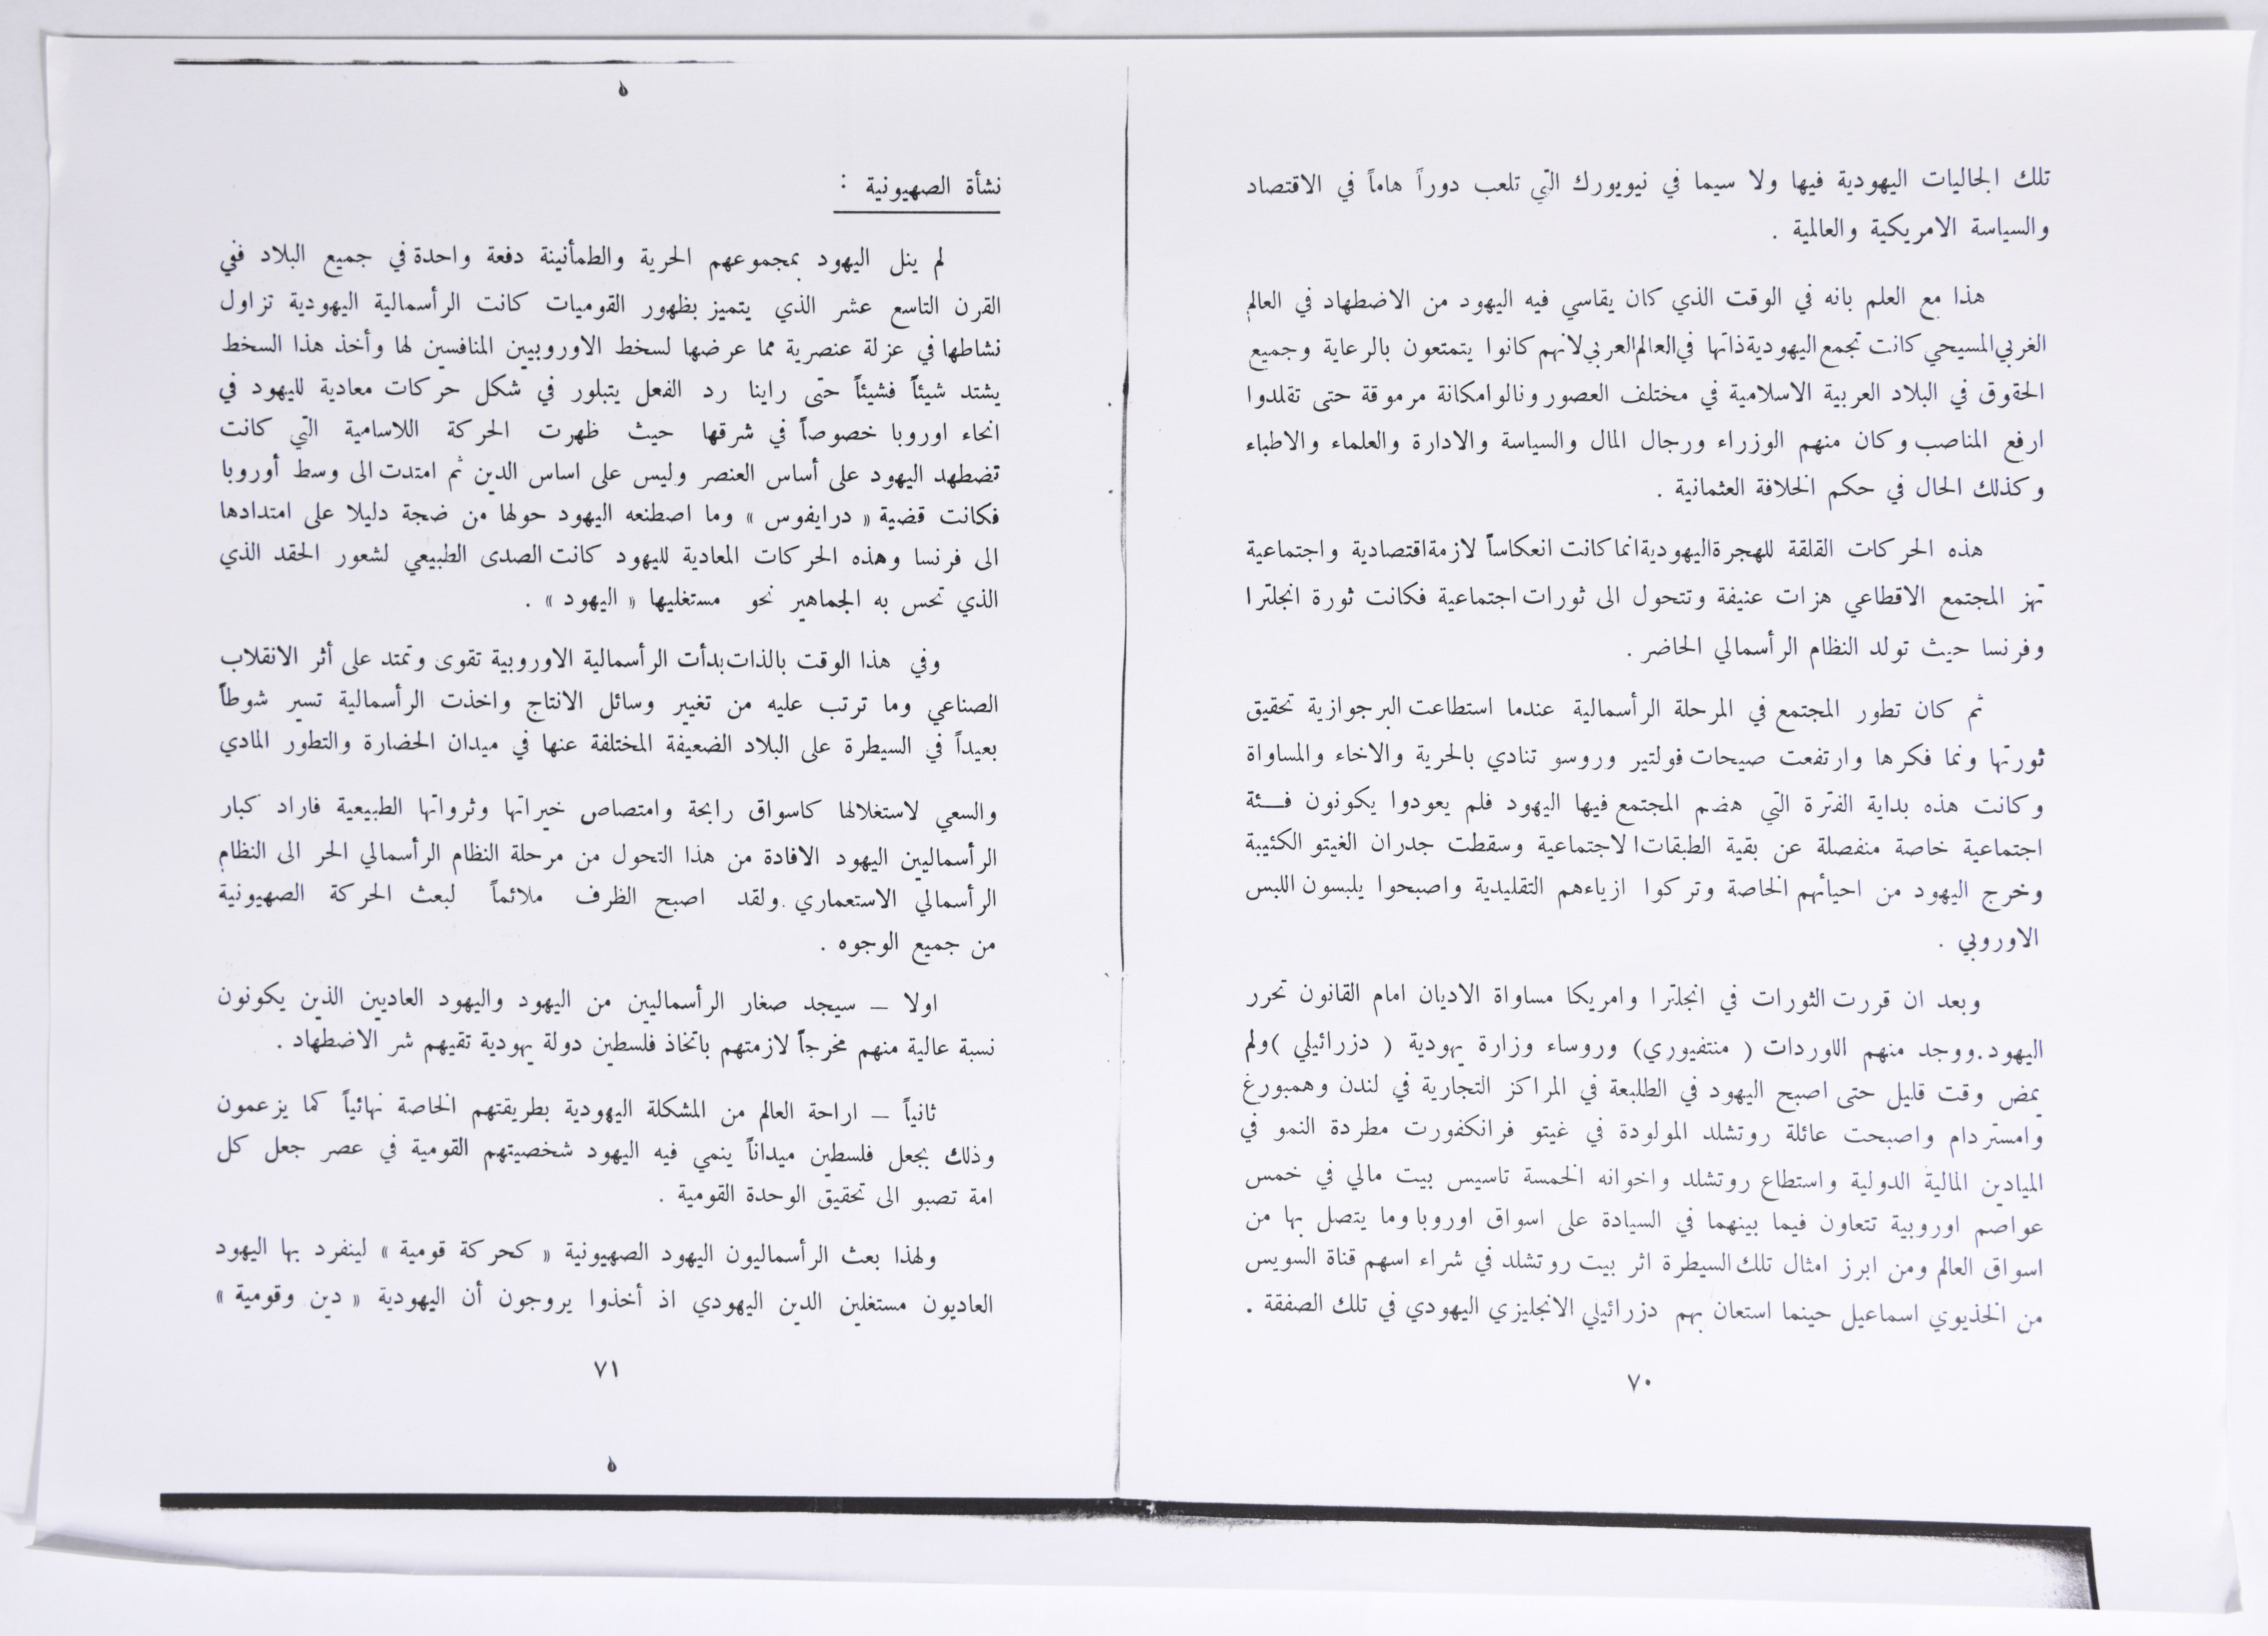 تلك الجاليات اليهودية فيها ولا سيما في نيويورك التي تلعب دوراً هاماً في الاقتصاد
والسياسة الامريكية والعالمية .
هذا مع العلم بانه في الوقت الذي كان يقاسي فيه اليهود من الاضطهاد في العالم
الغربي المسيحي كانت تجمع اليهودية ذاتها في العالم العربي لانهم كانوا يتمتعون بالرعاية وجميع
الحقوق في البلاد العربية الاسلامية في مختلف العصور ونالوا مكانة مرموقة حتى تقلدوا
ارفع المناصب وكان منهم الوزراء ورجال المال والسياسة والادارة والعلماء والاطباء
وكذلك الحال في حكم الخلافة العثمانية .
هذه الحركات القلقة للهجرة اليهودية انما كانت انعكاساً لازمة اقتصادية واجتماعية
تهز المجتمع الاقطاعي هزات عنيفة وتتحول الى ثورات اجتماعية فكانت ثورة انجلترا
وفرنسا حيث تولد النظام الرأسمالي الحاضر .
ثم كان تطور المجتمع في المرحلة الرأسمالية عندما استطاعت البرجوازية تحقيق
ثورتها ونما فكرها وارتفعت صيحات فولتير وروسو تنادي بالحرية والاخاء والمساواة
وكانت هذه بداية الفترة التي هضم المجتمع فيها اليهود فلم يعودوا يكونون فـــئة
اجتماعية خاصة منفصلة عن بقية الطبقات الاجتماعية وسقطت جدران الغيتو الكئيبة
وخرج اليهود من احيائهم الخاصة وتركوا ازياءهم التقليدية واصبحوا يلبسون اللبس
الاوروبي .
وبعد ان قررت الثورات في انجلترا وامريكا مساواة الاديان امام القانون تحرر
اليهود.ووجد منهم اللوردات ( منتفيوري) وروساء وزارة يهودية ( دزرائيلي )ولم
يمض وقت قليل حتى اصبح اليهود في الطلبعة في المراكز التجارية في لندن وهمبورغ
وامستردام واصبحت عائلة روتشلد المولودة في غيتو فرانكفورت مطردة النمو في
الميادين المالية الدولية واستطاع روتشلد واخوانه الخمسة تاسيس بيت مالي في خمس
عواصم اوروبية تتعاون فيما بينهما في السيادة على اسواق اوروبا وما يتصل بها من
اسواق العالم ومن ابرز امثال تلك السيطرة اثر بيت روتشلد في شراء اسهم قناة السويس
من الخذيوي اسماعيل حينما استعان بهم دزرائيلي الانجليزي اليهودي في تلك الصفقة .
٧٠
نشأة الصهيونية :
لم ينل اليهود بمجموعهم الحرية والطمأنينة دفعة واحدة في جميع البلاد ففي
القرن التاسع عشر الذي يتميز بظهور القوميات كانت الرأسمالية اليهودية تزاول
نشاطها في عزلة عنصرية مما عرضها لسخط الاوروبيين المنافسين لها وأخذ هذا السخط
يشتد شيئاً فشيئاً حتى راينا رد الفعل يتبلور في شكل حركات معادية لليهود في
انحاء اوروبا خصوصاً في شرقها حيث ظهرت الحركة اللاسامية التي كانت
تضطهد اليهود على أساس العنصر وليس على اساس الدين ثم امتدت الى وسط أوروبا
فكانت قضية « درايفوس » وما اصطنعه اليهود حولها من ضجة دليلا على امتدادها
الى فرنسا وهذه الحركات المعادية لليهود كانت الصدى الطبيعي لشعور الحقد الذي
الذي تحس به الجماهير نحو مستغليها « اليهود » .
وفي هذا الوقت بالذات بدأت الرأسمالية الاوروبية تقوى وتمتد على أثر الانقلاب
الصناعي وما ترتب عليه من تغيير وسائل الانتاج واخذت الرأسمالية تسير شوطاً
بعيداً في السيطرة على البلاد الضعيفة المختلفة عنها في ميدان الحضارة والتطور المادي
والسعي لاستغلالها كاسواق رابحة وامتصاص خيراتها وثرواتها الطبيعية فاراد كبار
الرأسماليين اليهود الافادة من هذا التحول من مرحلة النظام الرأسمالي الحر الى النظام
الرأسمالي الاستعماري .ولقد اصبح الظرف ملائماً لبعث الحركة الصهيونية
من جميع الوجوه .
اولا – سيجد صغار الرأسماليين من اليهود واليهود العاديين الذين يكونون
نسبة عالية منهم مخرجاً لازمتهم باتخاذ فلسطين دولة يهودية تقيهم شر الاضطهاد .
ثانياً – اراحة العالم من المشكلة اليهودية بطريقتهم الخاصة نهائياً كما يزعمون
وذلك بجعل فلسطين ميداناً ينمي فيه اليهود شخصيتهم القومية في عصر جعل كل
امة تصبو الى تحقيق الوحدة القومية .
ولهذا بعث الرأسماليون اليهود الصهيونية « كحركة قومية » لينفرد بها اليهود
العاديون مستغلين الدين اليهودي اذ أخذوا يروجون أن اليهودية « دين وقومية »
٧١